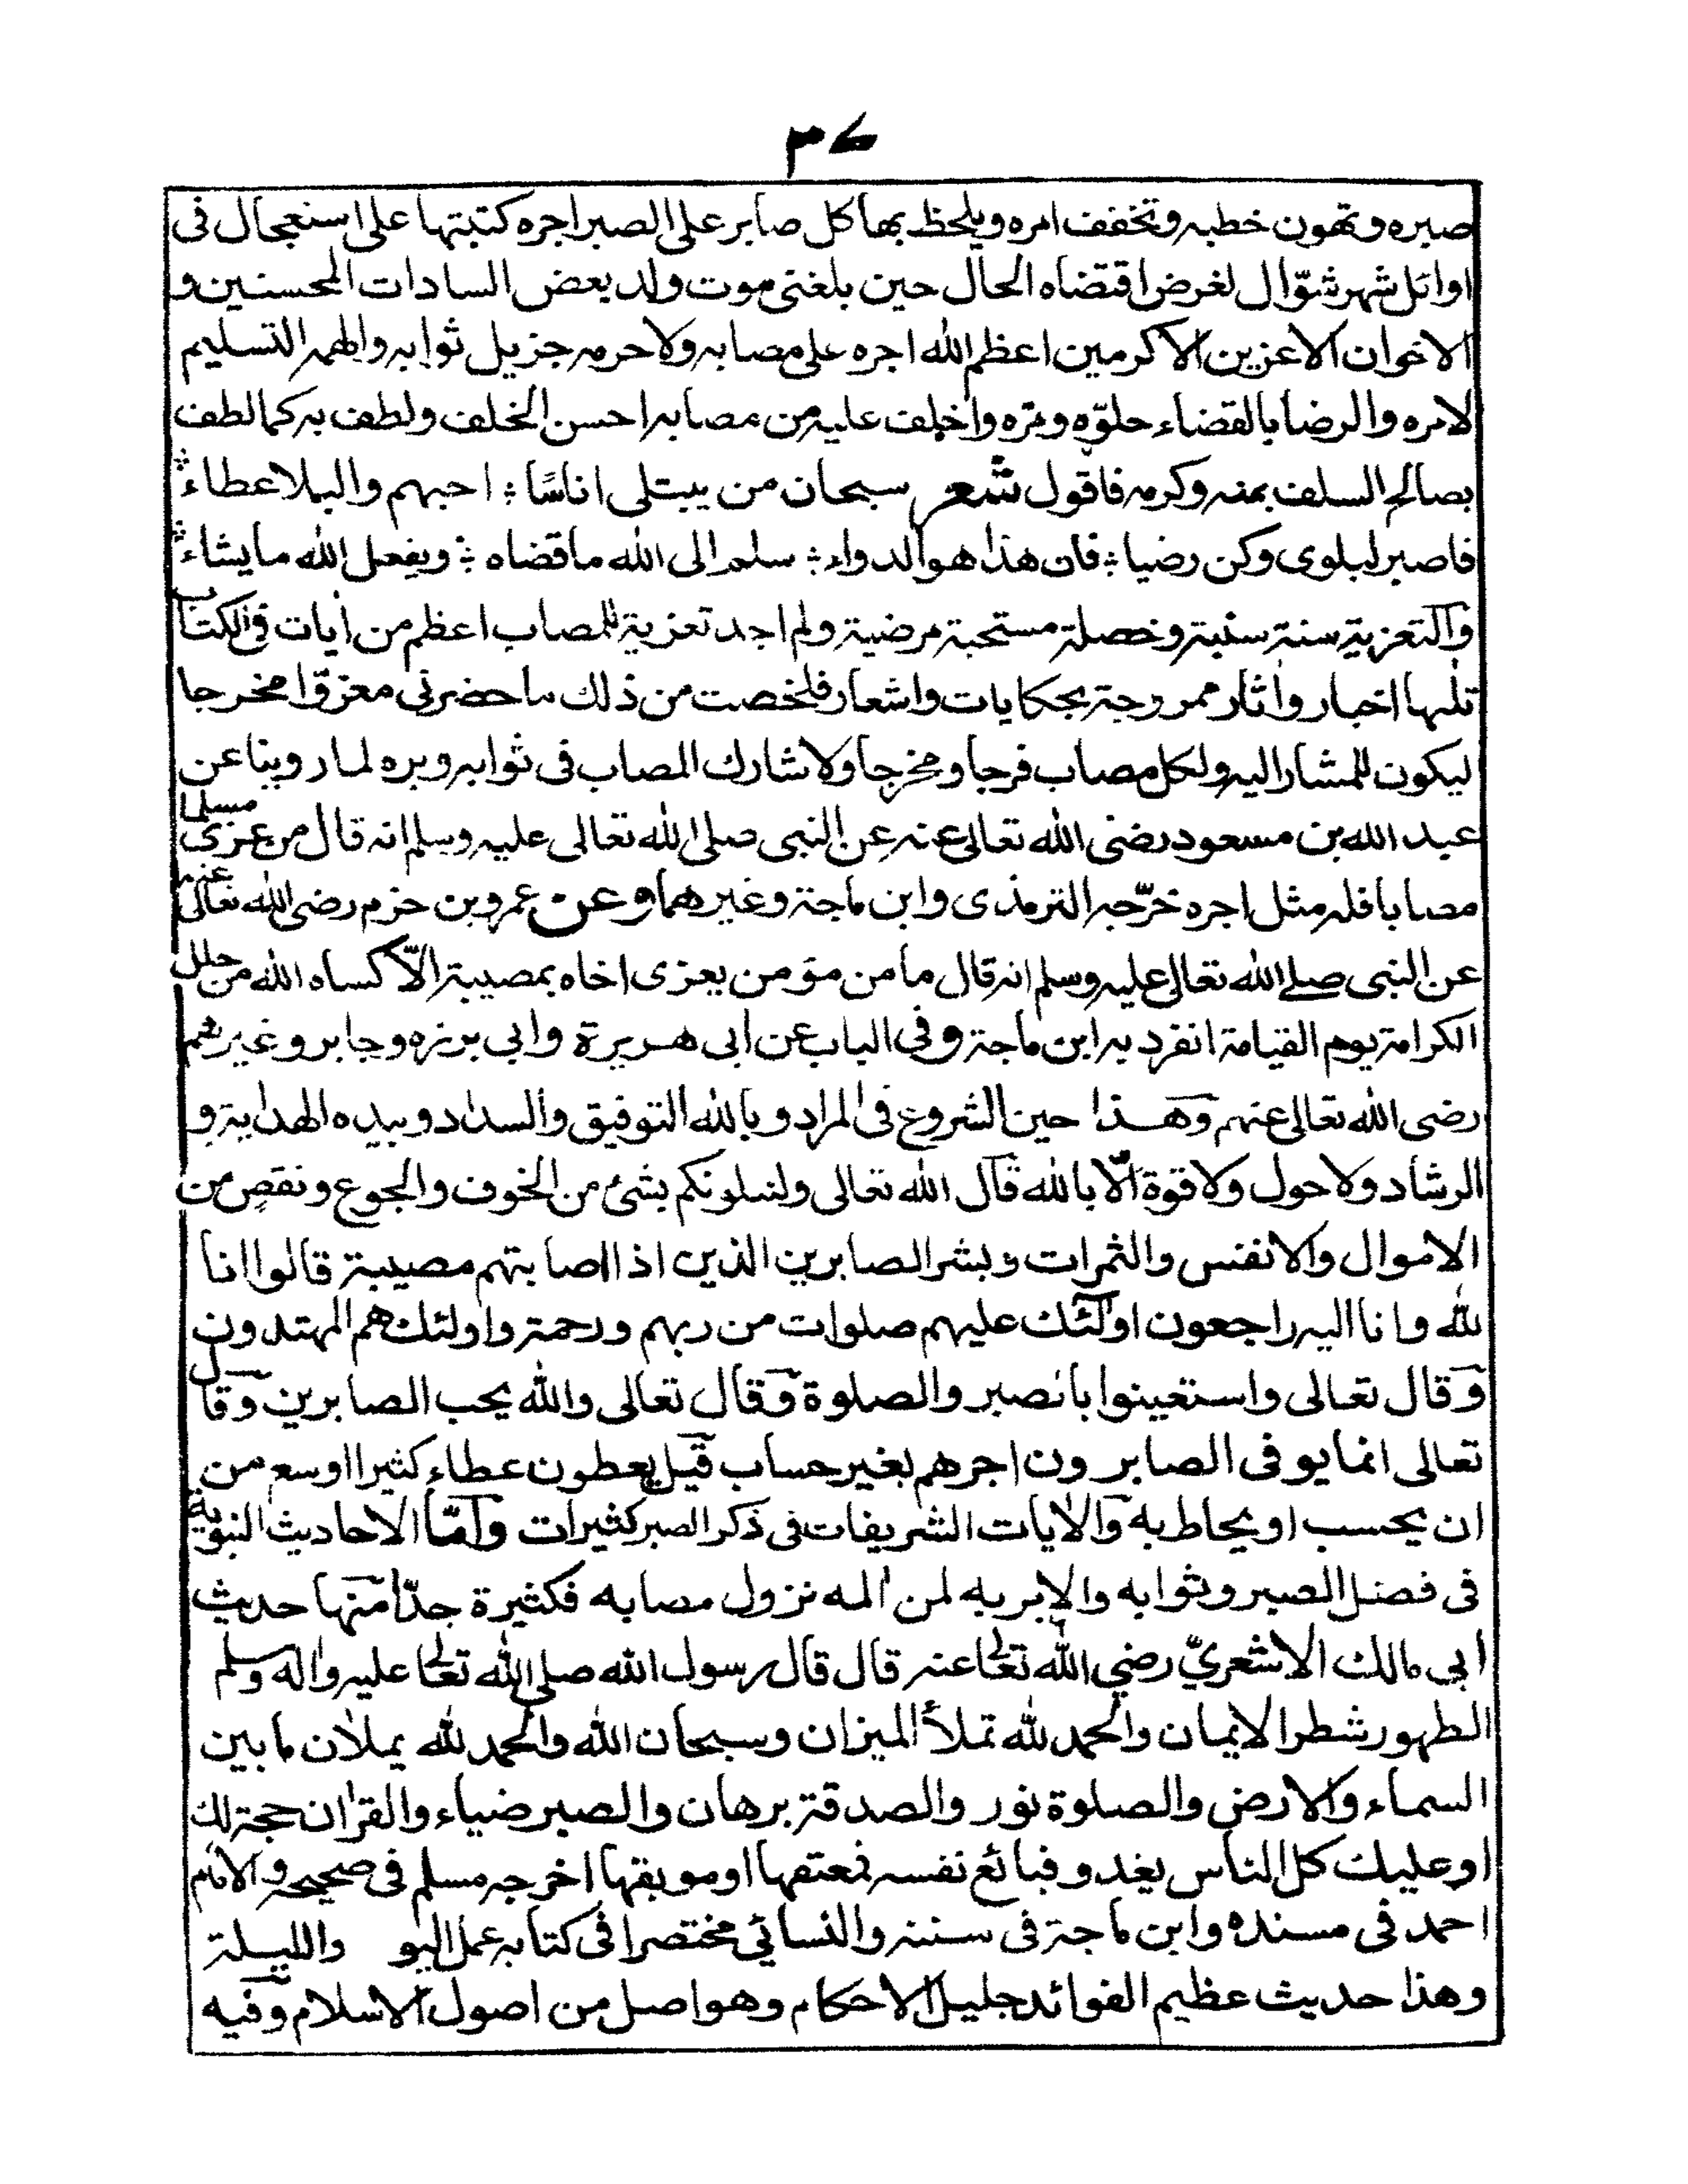 ٣٧
صبره وتهون خطبه وتخفف امره ويلحظ بها كل صابر على الصبر اجره كتبتها على استعجال فى
اوائل شهر شوّال لغرض اقتضاه الحال حين بلغنى موت ولد بعض السادات المحسنين و
الاخوان الاعزين الاكرمين اعظم الله اجره على مصابه ولاحرمه جزيل ثوابه والهمه التسليم
لامره والرضا بالقضاء حلوّه ومرّه واخلف عليه من مصابه احسن الخلف ولطف به كما لطف
بصالح السلف بمنه وكرمه فاقول شعر سبحان من يبتلى اناسًا ؛ احبهم والبلا عطاء ؛
فاصبر لبلوى وكن رضيا ؛ فان هذا هو الدواء ؛ سلم الى الله ماقضاه ؛ ويفعل الله مايشاء ؛
والتعزية سنة سنية وخصلة مستحبة مرضية ولم اجد تعزية للمصاب اعظم من أيات فى الكتاب
تلتها اخبار واثار ممزوجة بحكايات واشعار فلخصت من ذلك ما حضرنى معزوّا مخرجا
ليكون للمشار اليه ولكل مصاب فرجا ومخرجا ولاشارك المصاب فى ثوابه وبره لما روينا عن
عبد الله بن مسعود رضى الله تعالى عنه عن النبى صلى الله تعالى عليه وسلم انه قال من عزى مسلما
مصابا فله مثل اجره خرّجه الترمذى وابن ماجة وغيرهما وعن عمرو بن حزم رضى الله تعالى عنه
عن النبى صلے الله تعالى عليه وسلم انه قال ما من مؤمن يعزى اخاه بمصيبة الّا كساه الله من حلل
الكرامة يوم القيامة انفرد به ابن ماجة وفى الباب عن أبى هريرة وابي برزه وجابر وغيرهم
رضى الله تعالى عنهم وهذا حين الشروع فى المراد وبالله التوفيق والسداد وبيده الهداية و
الرشاد ولاحول ولاقوة الّا بالله قال الله تعالى ولنبلونكم بشئ من الخوف والجوع ونقصٍ من
الاموال والانفس والثمرات وبشر الصابرين الذين اذا اصابتهم مصيبة قالوا انا
لله وانا اليه راجعون اولٓئك عليهم صلوات من ربهم ورحمة واولئك هم المهتدون
وقال تعالى واستعينوا بالصبر والصلوة وقال تعالى والله يحب الصابرين وقال
تعالى انما يوفى الصابرون اجرهم بغير حساب قيل يعطون عطاء كثيرا اوسع من
ان يحسب او يحاط به والأيات الشريفات فى ذكر الصبر كثيرات وامّا الاحاديث النبوية
فى فضل الصبر وثوابه والابر به لمن المه نزول مصابه فكثيرة جدّا منها حديث
أبى مالك الاشعريّ رضي الله تعالى عنه قال قال رسول الله صلى الله تعالى عليه واله وسلم
الطهور شطر الايمان والحمد لله تملأ الميزان وسبحان الله والحمد لله يملأن مابين
السماء والارض والصلوة نور والصدقة برهان والصبر ضياء والقرأن حجة لك
او عليك كل الناس يغدو فبائع نفسه فمعتقها او موبقها اخرجه مسلم فى صحيحه والامام
احمد فى مسنده وابن ماجة فى سننه والنسائي مختصرا فى كتابه عمل اليو والليلة
وهذا حديث عظيم الفوائد جليل الاحكام وهو اصل من اصول الاسلام وفيه